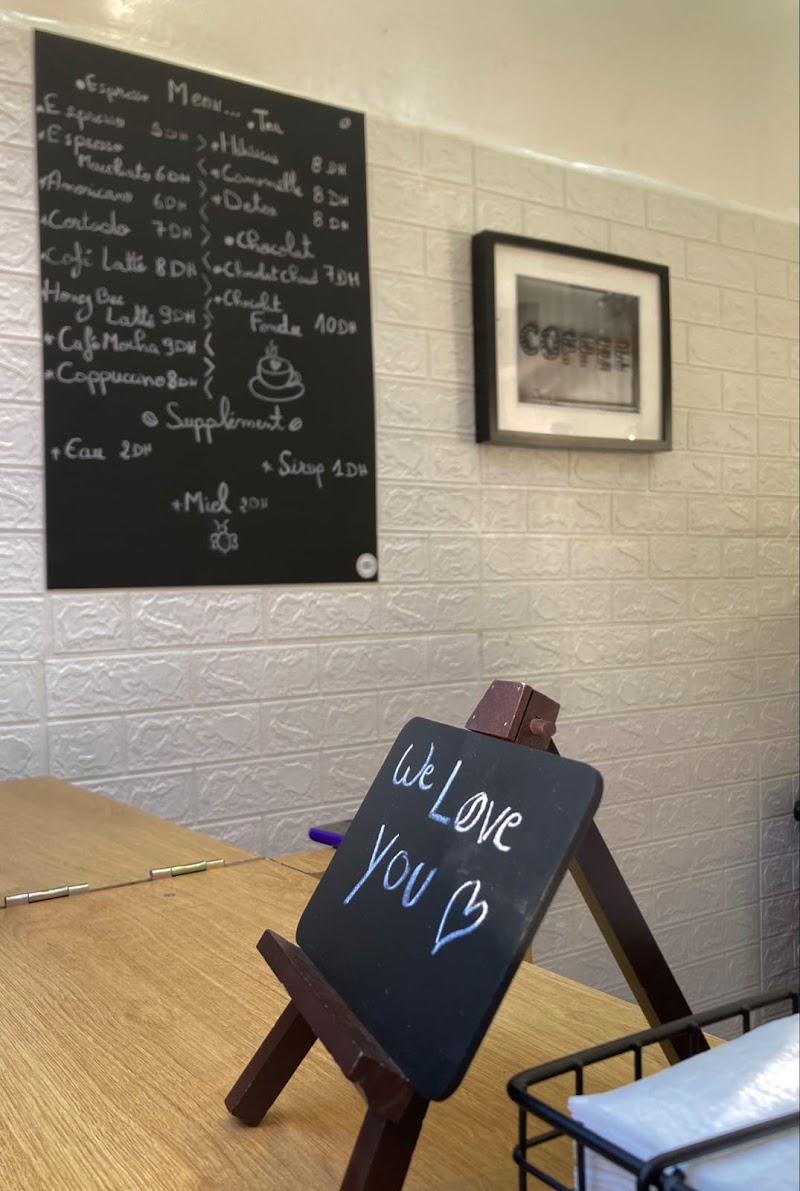 Menu...
• Espresso
• Espresso 5DH
• Espresso
Macchiato 6DH
• Americano 6DH
• Cortado 7DH
• Café Latté 8DH
Honey Bee
Latté 9DH
• Café Mocha 9DH
• Cappuccino 8DH
• Tea
• Hibiscus 8DH
• Camomille 8DH
• Detox 8DH
• Chocolat
• Chocolat Chaud 7DH
• Chocolat
Fondu 10DH
Supplément
• Eau 2DH
• Sirop 1DH
• Miel 2DH
COFFEE
We Love
You